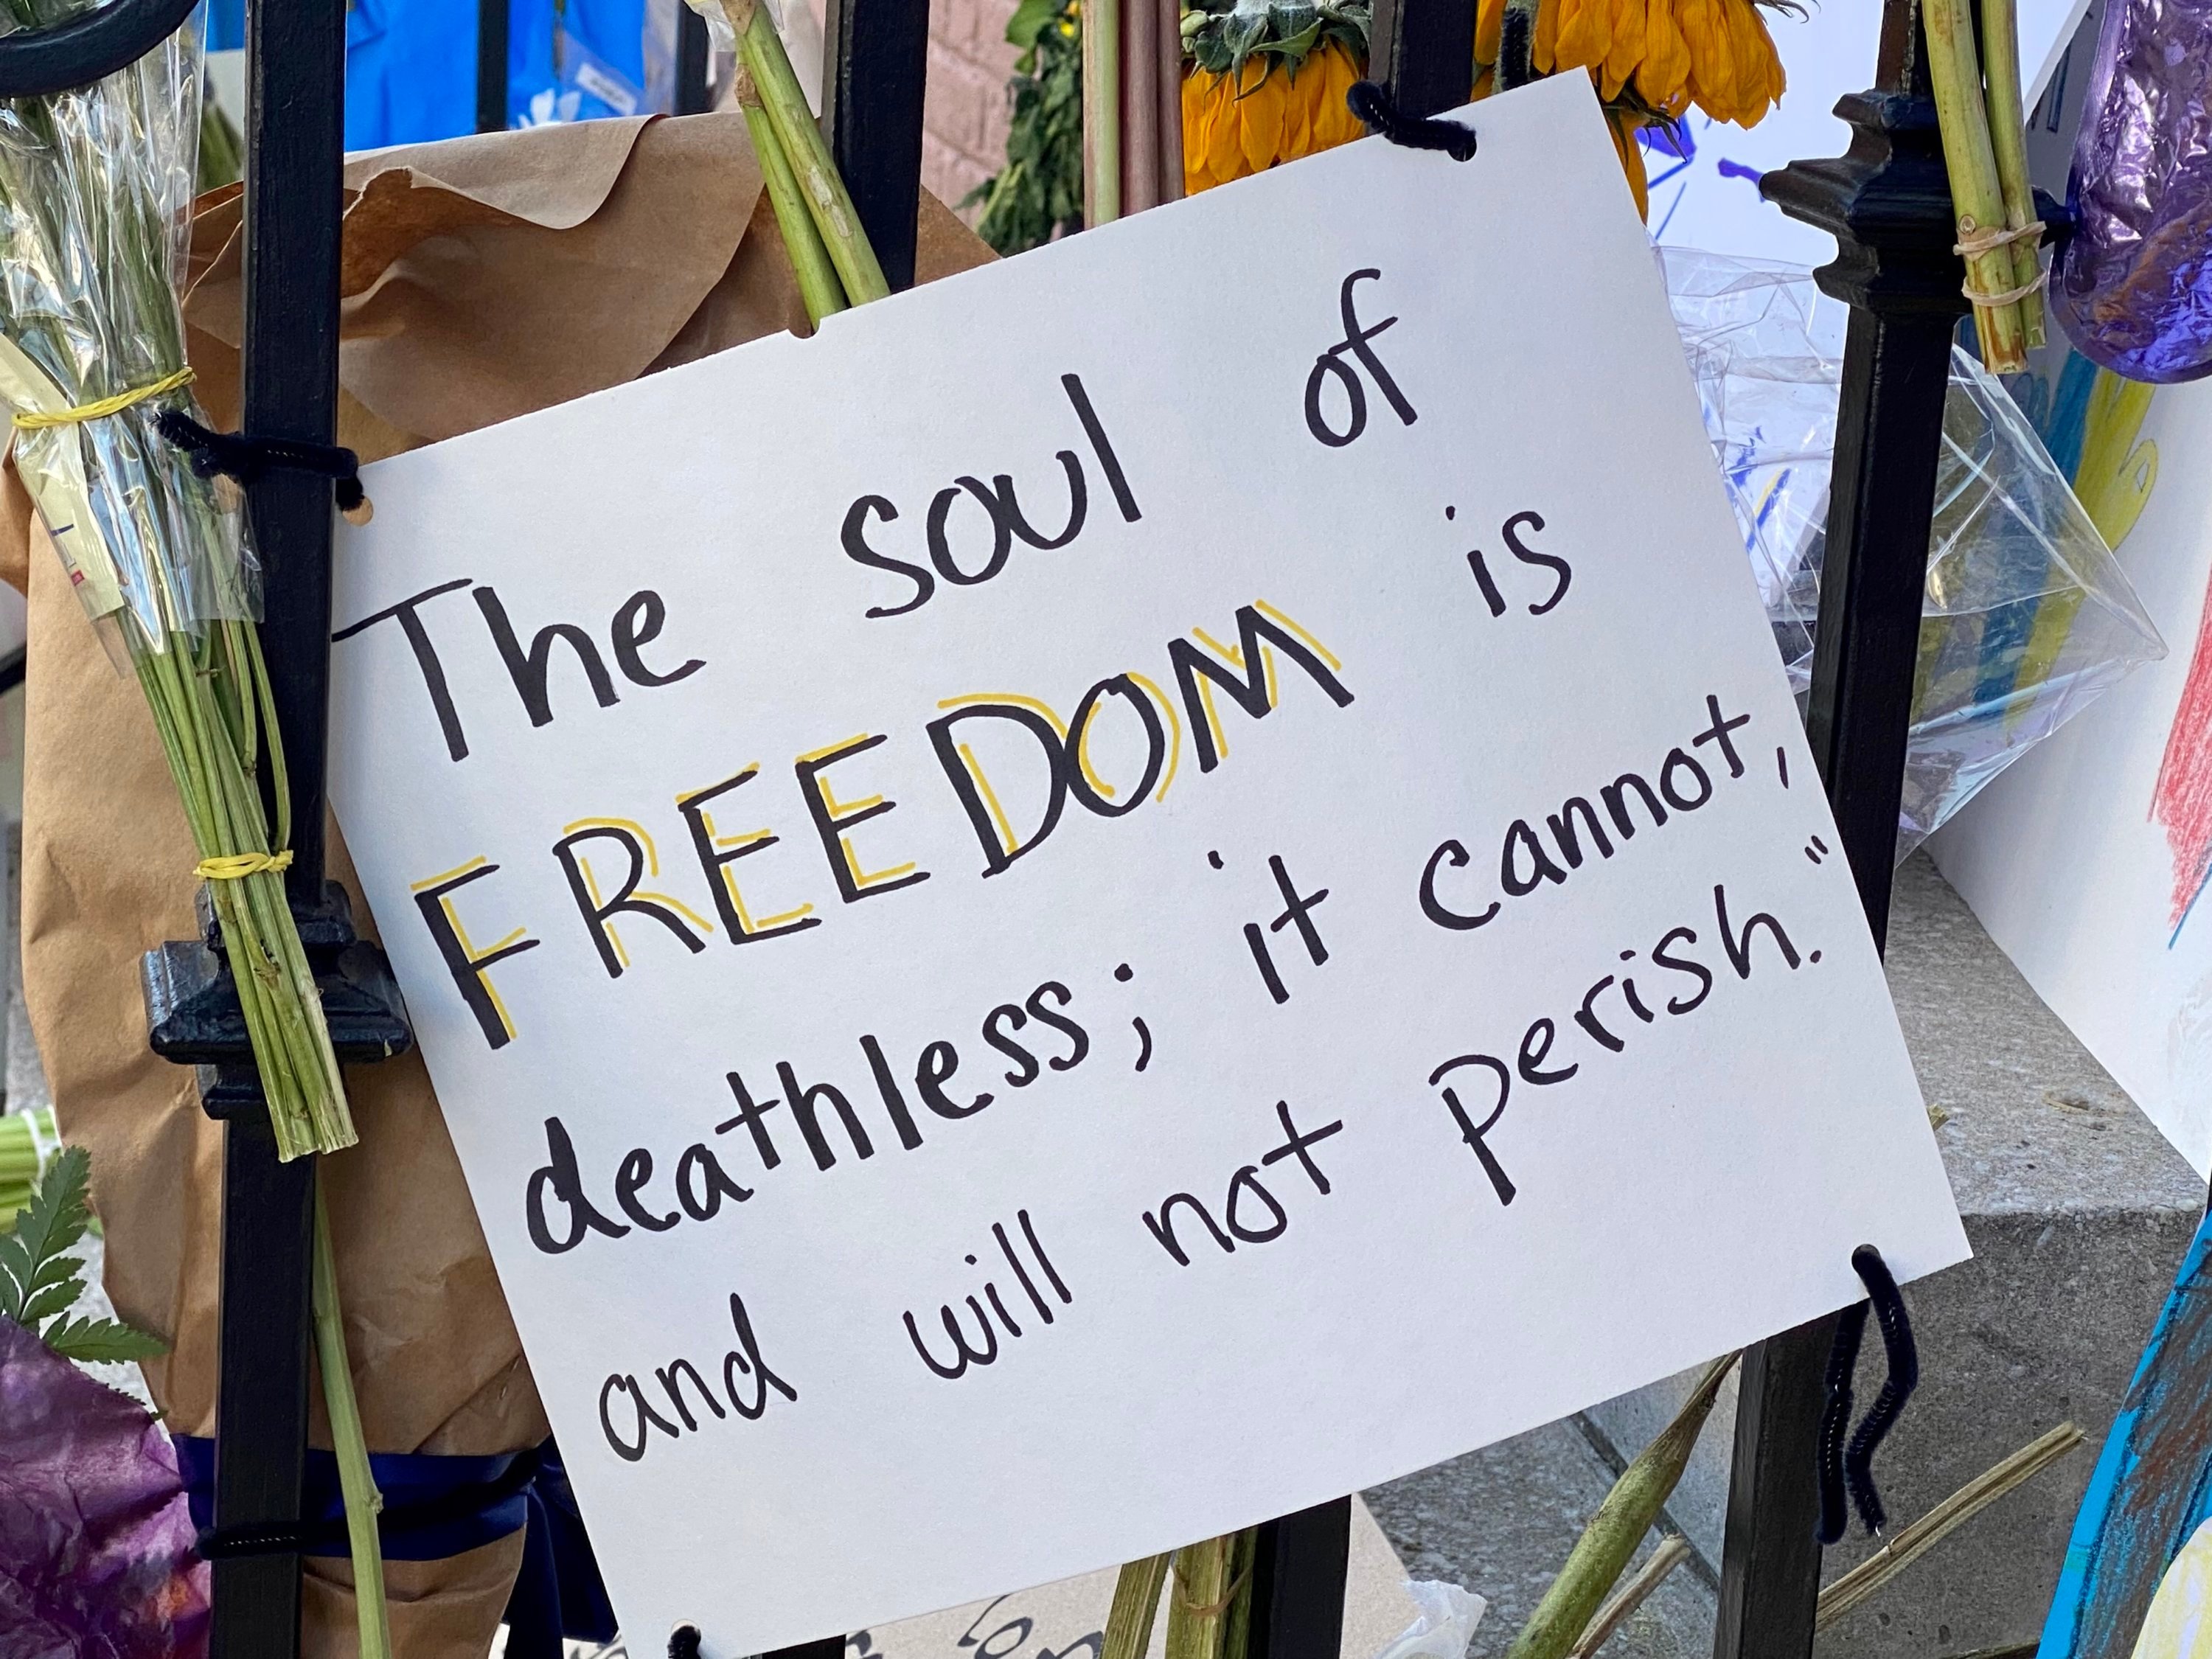 The soul of
FREEDOM is
deathless; it cannot,
and will not perish."